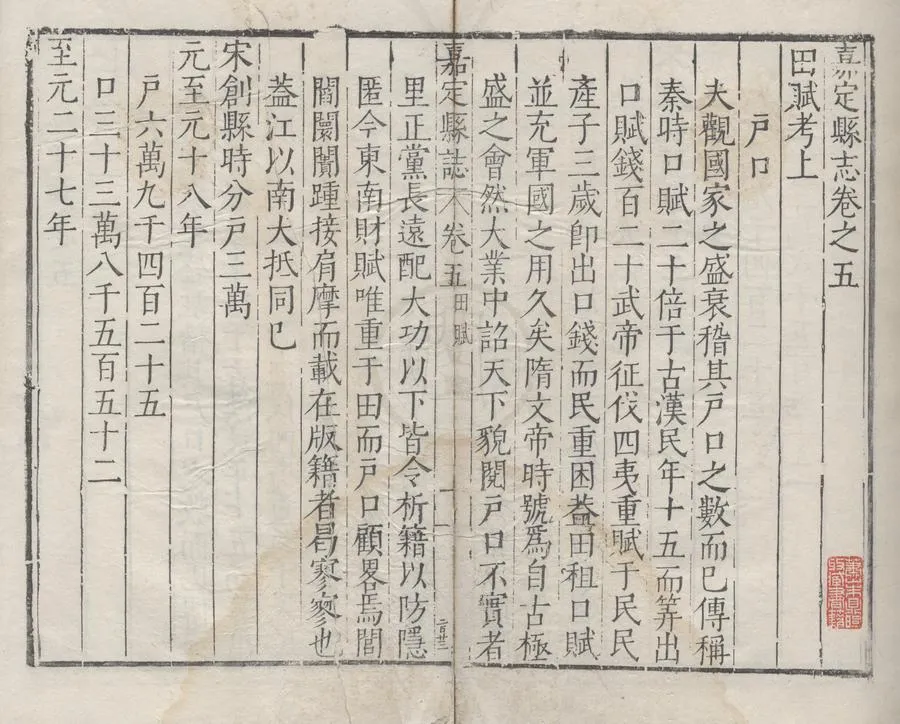 嘉定縣志卷之五
田賦考上
戶口
夫觀國家之盛衰稽其戶口之數而已傳稱
秦時口賦二十倍于古漢民年十五而筭出
口賦錢百二十武帝征伐四夷重賦于民民
產子三歲卽出口錢而民重困葢田租口賦
並充軍國之用久矣隋文帝時號爲自古極
盛之會然大業中詔天下貌閱戶口不實者
嘉定縣誌 卷五 田賦
里正黨長遠配大功以下皆令析籍以防隱
匿今東南財賦唯重于田而戶口顧畧焉閭
閻闤闠踵接肩摩而載在版籍者曷寥寥也
葢江以南大抵同已
宋創縣時分戶三萬
元至元十八年
戶六萬九千四百二十五
口三十三萬八千五百五十二
至元二十七年